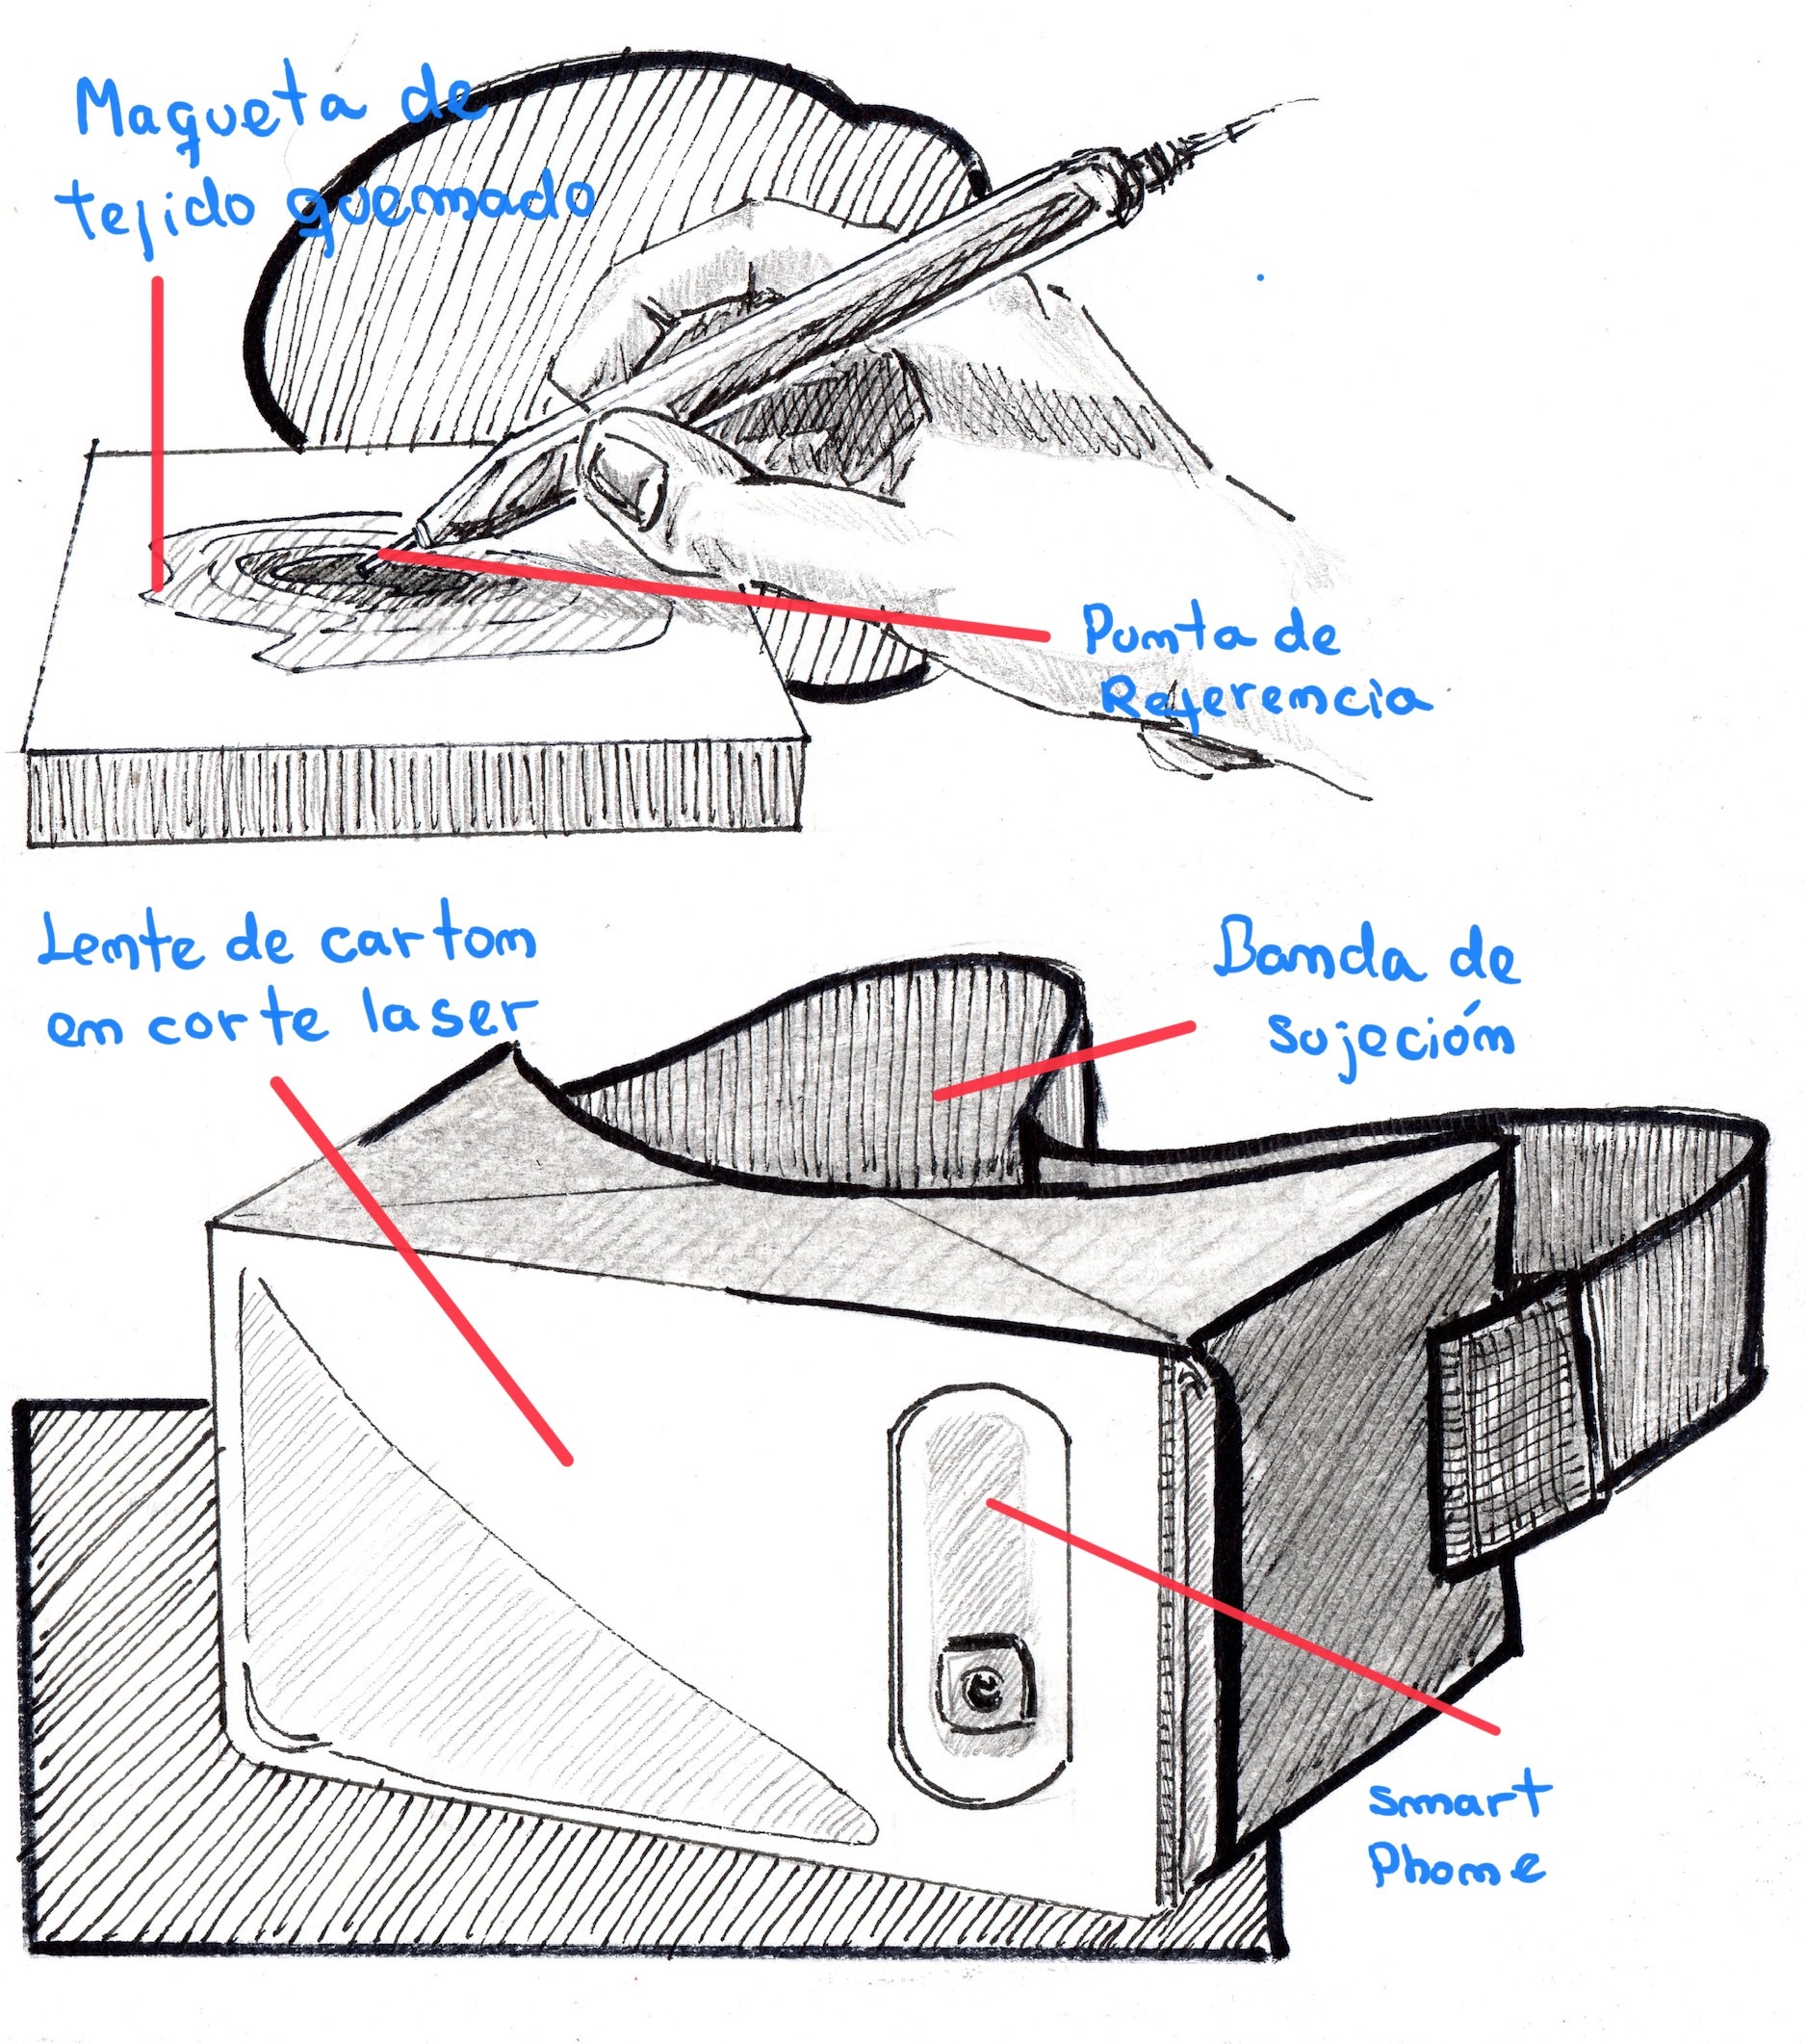 Maqueta de
tejido quemado
Punta de
Referencia
Lente de carton
en corte laser
Banda de
sujeción
smart
Phone